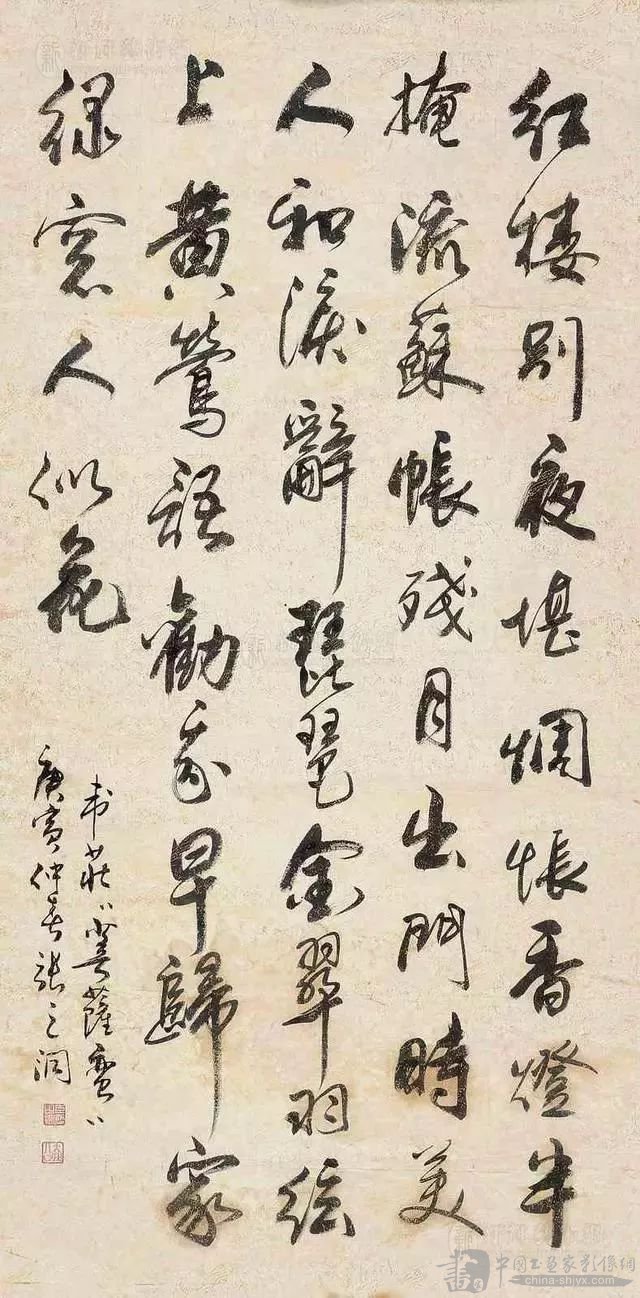 紅楼別夜堪惆悵香燈半
掩流蘇帳殘月出門時美
人和淚辭琵琶金翠羽弦
上黄鶯語勸我早歸家
緑窓人似花
韦荘〝菩薩蛮〞
庚寅仲春張之洞
中国书画家影像網
china-shjyx.com